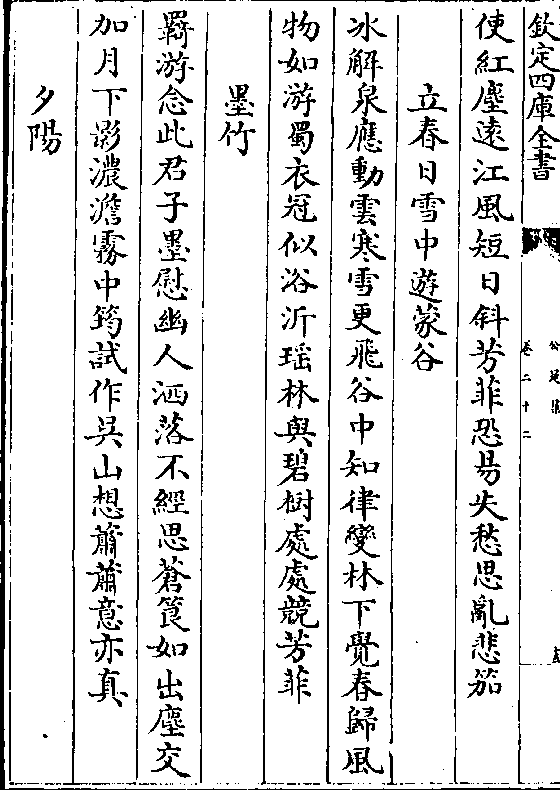 欽定四庫全書
卷二十二
使紅塵遠江風短日斜芳菲恐易失愁思亂悲笳
立春日雪中遊蒙谷
冰解泉應動雲寒雪更飛谷中知律變林下覺春歸風
物如游蜀衣冠似浴沂瑶林與碧樹處處競芳菲
墨竹
羇游念此君子墨慰幽人洒落不經思蒼筤如出塵交
加月下影濃澹霧中筠試作吳山想蕭蕭意亦真
夕陽